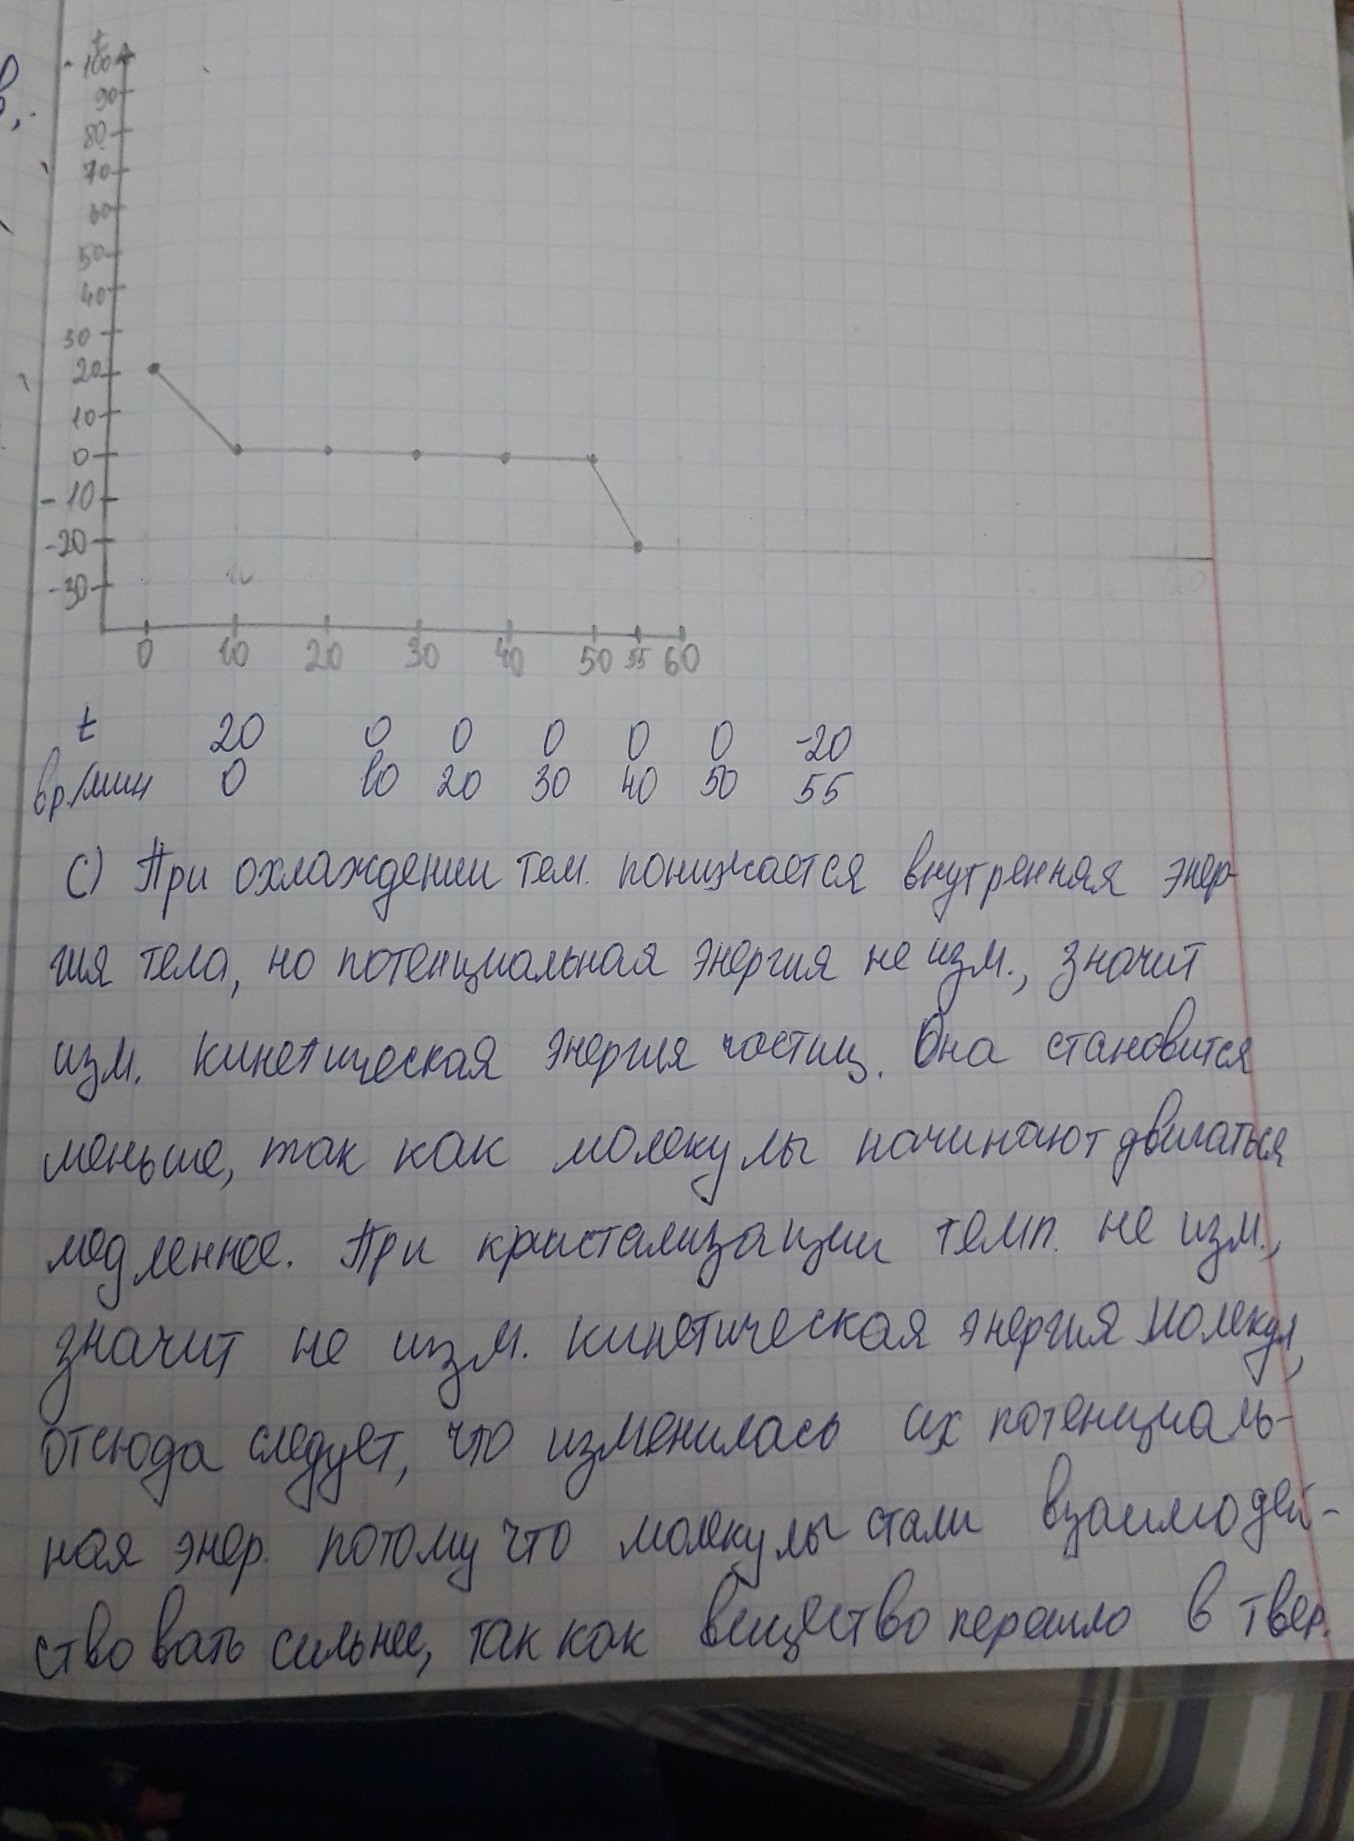 t
100
90
80
70
60
50
40
30
20
10
0
-10
-20
-30
0 10 20 30 40 50 55 60
t 20 0 0 0 0 0 -20
вр/мин 0 10 20 30 40 50 55
с) При охлаждении тем. понижается внутренняя энер-
гия тела, но потенциальная энергия не изм., значит
изм. кинетическая энергия частиц. Она становится
меньше, так как молекулы начинают двигаться
медленнее. При кристализации темп. не изм.,
значит не изм. кинетическая энергия молекул,
отсюда следует, что изменилась их потенциаль-
ная энер. потому что молекулы стали взаимодей-
ствовать сильнее, так как вещество перешло в твер.